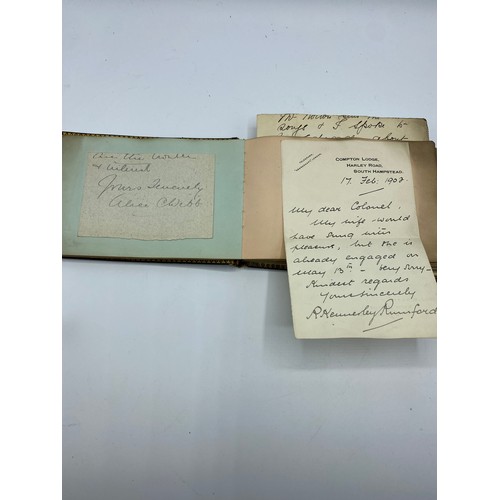 & interest
Yours Sincerely
Alice
songs & I spoke to
about
COMPTON LODGE,
HARLEY ROAD,
SOUTH HAMPSTEAD.
17. Feb. 1908.
My dear Colonel.
My wife would
have sung with
pleasure, but she is
already engaged on
May 13th - very sorry -
Kindest regards
Yours sincerely
R. Kennerley Rumford